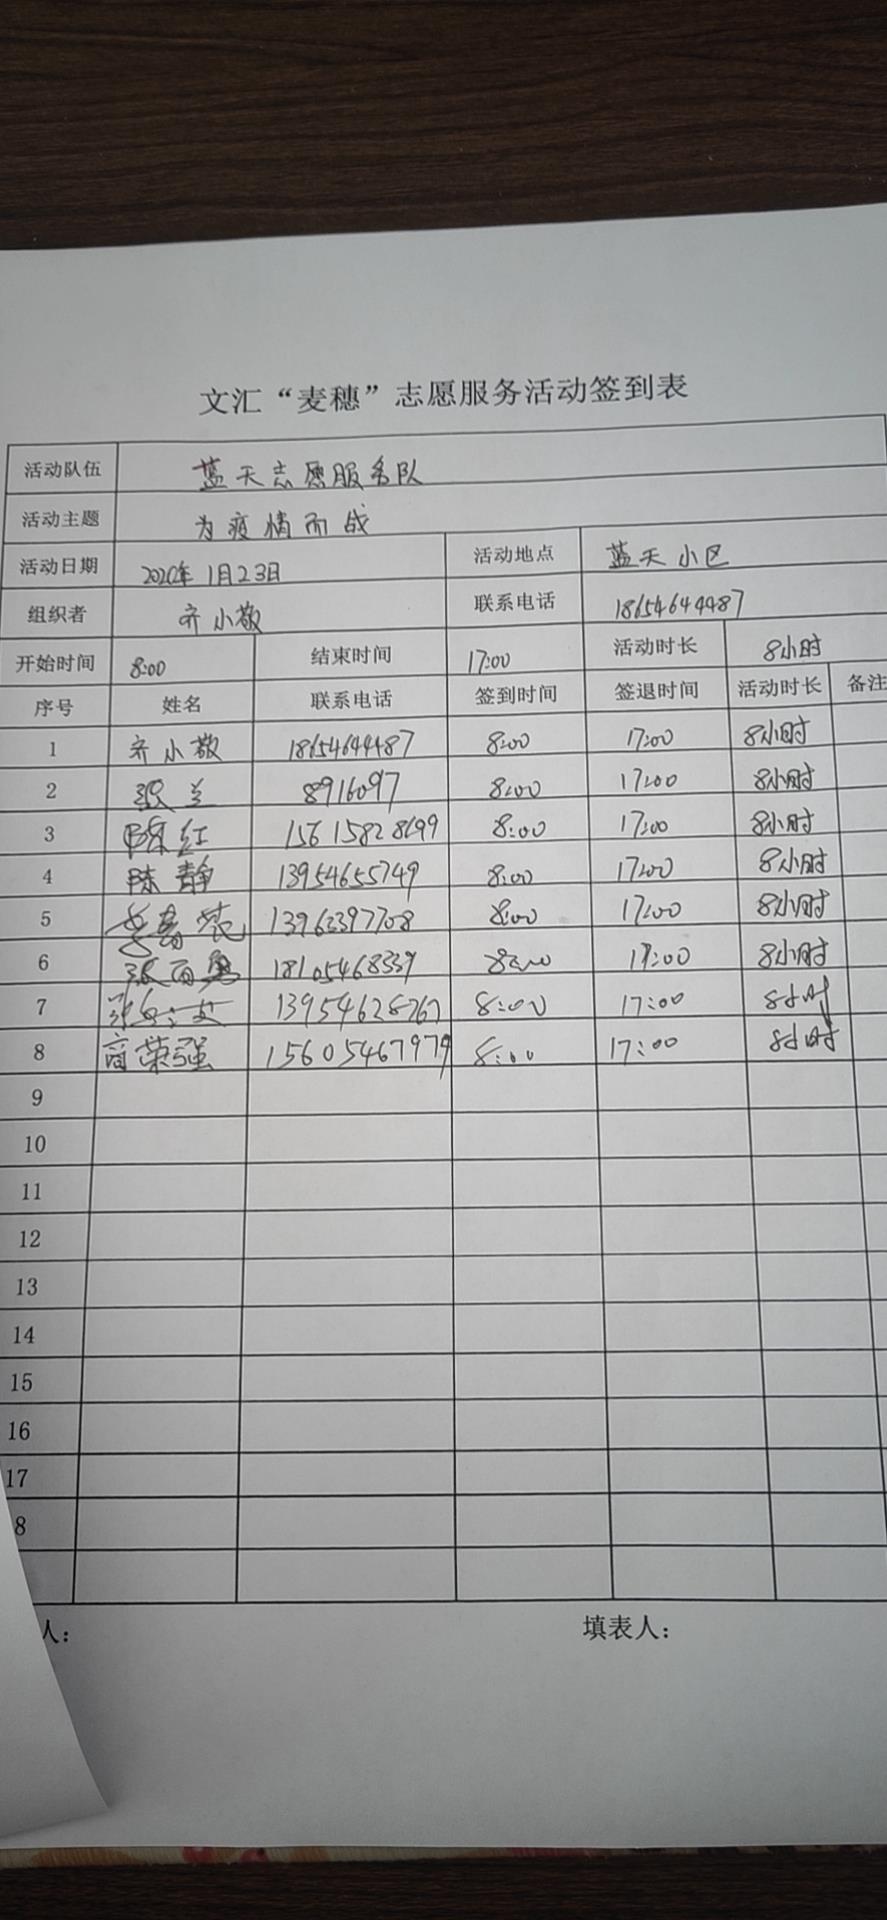 文汇“麦穗”志愿服务活动签到表
活动队伍 蓝天志愿服务队
活动主题 为疫情而战
活动日期 2020年1月23日 活动地点 蓝天小区
组织者 齐小敬 联系电话 18654644487
开始时间 8:00 结束时间 17:00 活动时长 8小时
序号 姓名 联系电话 签到时间 签退时间 活动时长 备注
1 齐小敬 18654644487 8:00 17:00 8小时
2 张兰 8916097 8:00 17:00 8小时
3 陈红 15615828699 8:00 17:00 8小时
4 陈静 13954655749 8:00 17:00 8小时
5 13963397708 8:00 17:00 8小时
6 18105468339 8:00 17:00 8小时
7 13954628767 8:00 17:00 8小时
8 商荣强 15605467979 8:00 17:00 8小时
9
10
11
12
13
14
15
16
17
8
人： 填表人：